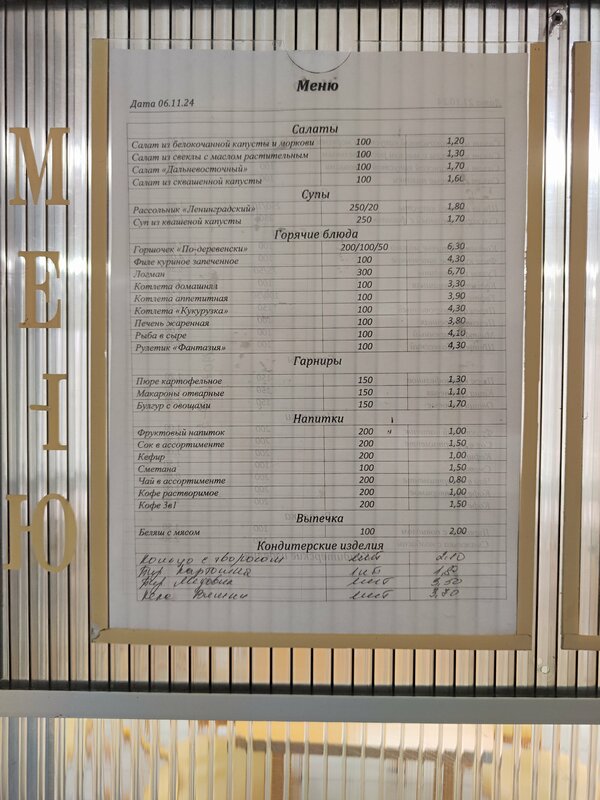 МЕНЮ
Меню
Дата 06.11.24
Салаты
Салат из белокочанной капусты и моркови 100 1,20
Салат из свеклы с маслом растительным 100 1,30
Салат «Дальневосточный» 100 1,70
Салат из сквашенной капусты 100 1,60
Супы
Рассольник «Ленинградский» 250/20 1,80
Суп из квашеной капусты 250 1,70
Горячие блюда
Горшочек «По-деревенски» 200/100/50 6,30
Филе куриное запеченное 100 4,30
Логман 300 6,70
Котлета домашняя 100 3,30
Котлета аппетитная 100 3,90
Котлета «Кукурузка» 100 4,30
Печень жаренная 100 3,80
Рыба в сыре 100 4,10
Рулетик «Фантазия» 100 4,30
Гарниры
Пюре картофельное 150 1,30
Макароны отварные 150 1,10
Булгур с овощами 150 1,70
Напитки
Фруктовый напиток 200 1,00
Сок в ассортименте 200 1,50
Кефир 200 1,00
Сметана 100 1,50
Чай в ассортименте 200 0,80
Кофе растворимое 200 1,00
Кофе 3в1 200 1,50
Выпечка
Беляш с мясом 100 2,00
Кондитерские изделия
Кольцо с творогом 1шт 2.10
Пир. Картошка 1шт
Пир. Медовик 1шт
1шт